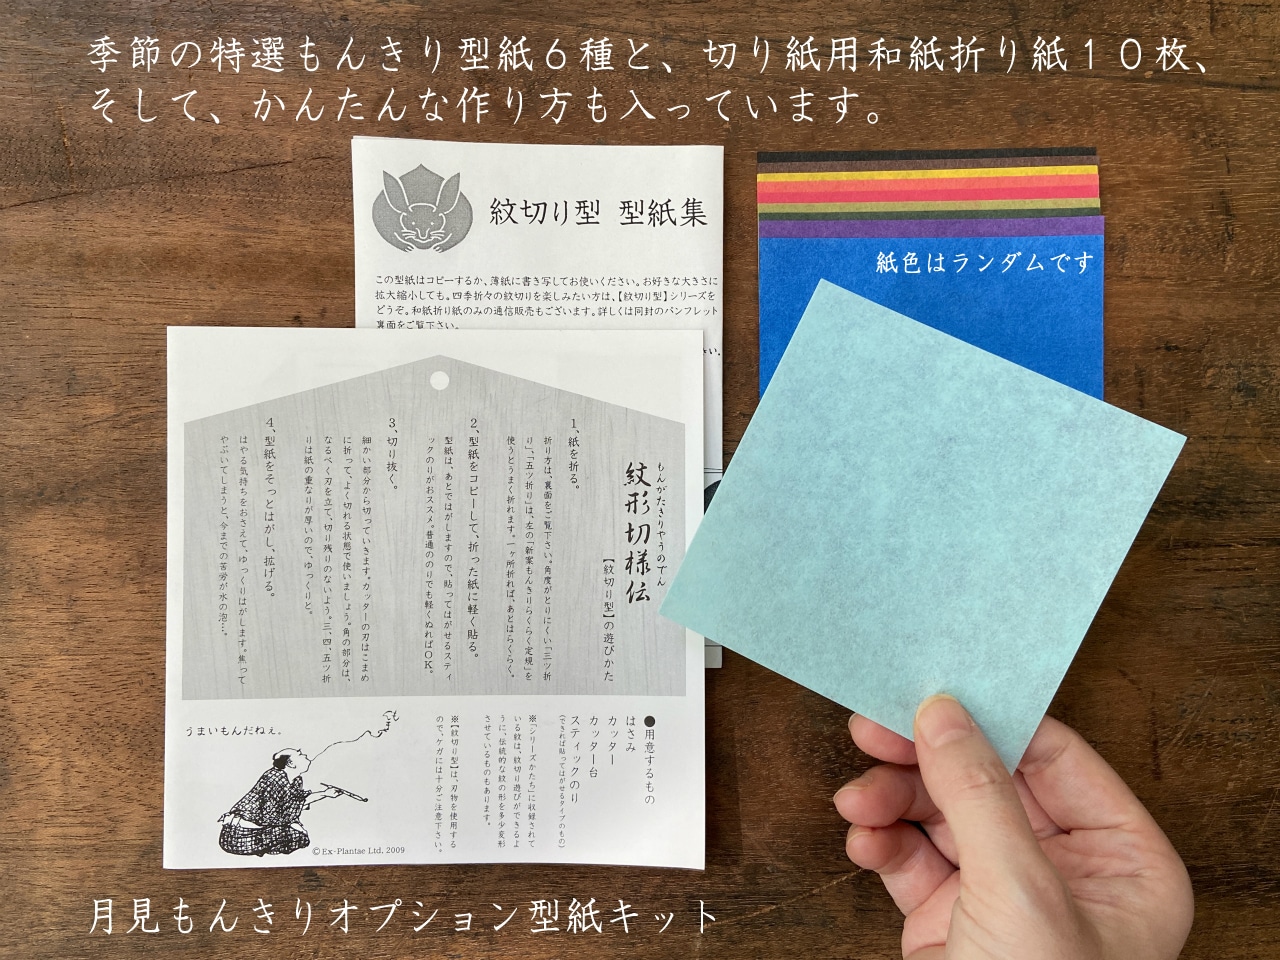 季節の特選もんきり型紙６種と、切り紙用和紙折り紙１０枚、
そして、かんたんな作り方も入っています。
紋切り型 型紙集
この型紙はコピーするか、薄紙に書き写してお使いください。お好きな大きさに
拡大縮小しても。四季折々の紋切りを楽しみたい方は、【紋切り型】シリーズを
どうぞ。和紙折り紙のみの通信販売もございます。詳しくは同封のパンフレット
裏面をご覧下さい。
さい。
紙色はランダムです
もんがたきりやうのでん
紋形切様伝
【紋切り型】の遊びかた
1、紙を折る。
折り方は、裏面をご覧下さい。角度がとりにくい「三ツ折
り」、「五ツ折り」は、左の「新案もんきりらくらく定規」を
使うとうまく折れます。一ヶ所折れば、あとはらくらく。
2、型紙をコピーして、折った紙に軽く貼る。
型紙は、あとではがしますので、貼ってはがせるスティ
ックのりがおススメ。普通ののりでも軽くぬればOK。
3、切り抜く。
細かい部分から切っていきます。カッターの刃はこまめ
に折って、よく切れる状態で使いましょう。角の部分は、
なるべく刃を立て、切り残りのないよう。三、四、五ツ折
りは紙の重なりが厚いので、ゆっくりと。
4、型紙をそっとはがし、拡げる。
はやる気持ちをおさえて、ゆっくりはがします。焦って
やぶいてしまうと、今までの苦労が水の泡…。
●用意するもの
はさみ
カッター
カッター台
スティックのり
(できれば貼ってはがせるタイプのもの)
※「シリーズかたち」に収録されて
いる紋は、紋切り遊びができるよ
うに、伝統的な紋の形を多少変形
させているものもあります。
※【紋切り型】は、刃物を使用する
ので、ケガには十分ご注意下さい。
うまいもんだねぇ。
©Ex-Plantae Ltd. 2009
月見もんきりオプション型紙キット